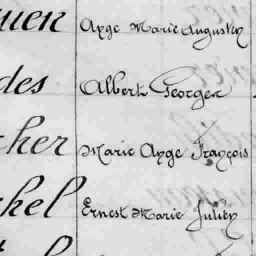 uen Ange Marie Augustin
des Albert Georges
cher Marie Ange François
chel Ernest Marie Julien